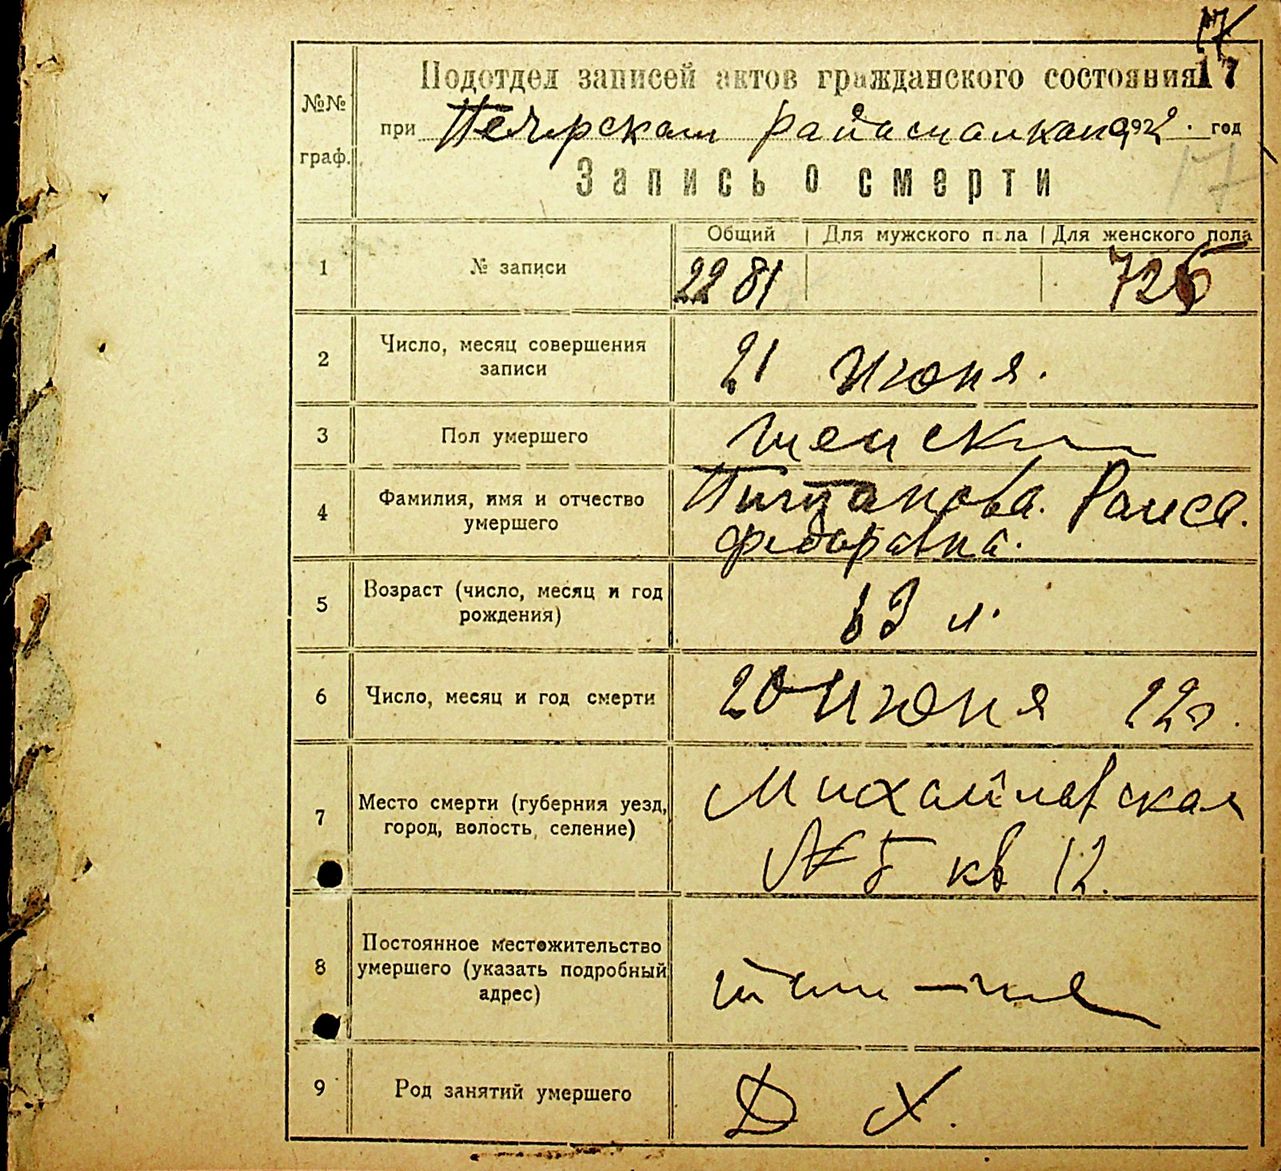 17
Подотдел записей актов гражданского состояния 17
№№ граф.
при Печерском 1922 год
17
Запись о смерти
Общий Для мужского пола Для женского пола
1 № записи 2281 726
2 Число, месяц совершения
записи
21 июня.
3 Пол умершего женский
4 Фамилия, имя и отчество
умершего
Раиса
Федоровна.
5 Возраст (число, месяц и год
рождения)
л.
6 Число, месяц и год смерти 20 июня 22г.
7 Место смерти (губерния уезд,
город, волость, селение)
Михайловская
№ 5 кв 12.
8 Постоянное местожительство
умершего (указать подробный
адрес)
там-же
9 Род занятий умершего Д Х.